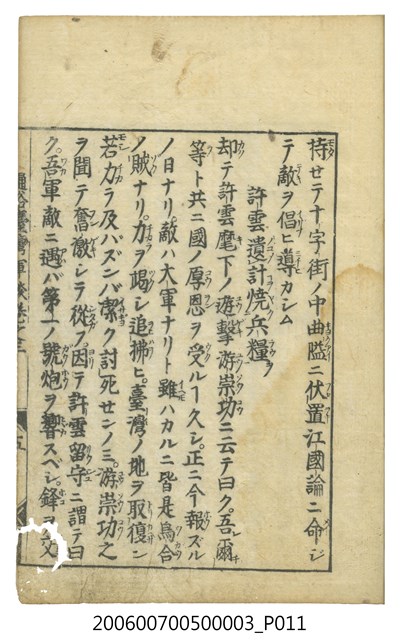 持セテ十字街ノ中曲隘ニ伏置江國論ニ命シ
テ敵ヲ倡ヒ導カシム
許雲遺計焼兵糧
却テ許雲麾下ノ遊撃游崇功ニ云テ曰ク吾爾
等ト共ニ國ノ厚恩ヲ受ルヿ久シ正ニ今報ズル
ノ日ナリ敵ハ大軍ナリト雖ハカルニ皆是烏合
ノ賊ナリ力ヲ竭シ追拂ヒ臺灣ノ地ヲ取復ン
若力ラ及ハズンバ潔ク討死センノミ游崇功之
ヲ聞テ奮激シテ從フ因テ許雲留守ニ謂テ曰
ク吾軍敵ニ遇バ第一ノ號炮ヲ響スベシ鋒ヲ交
五
200600700500003_P011